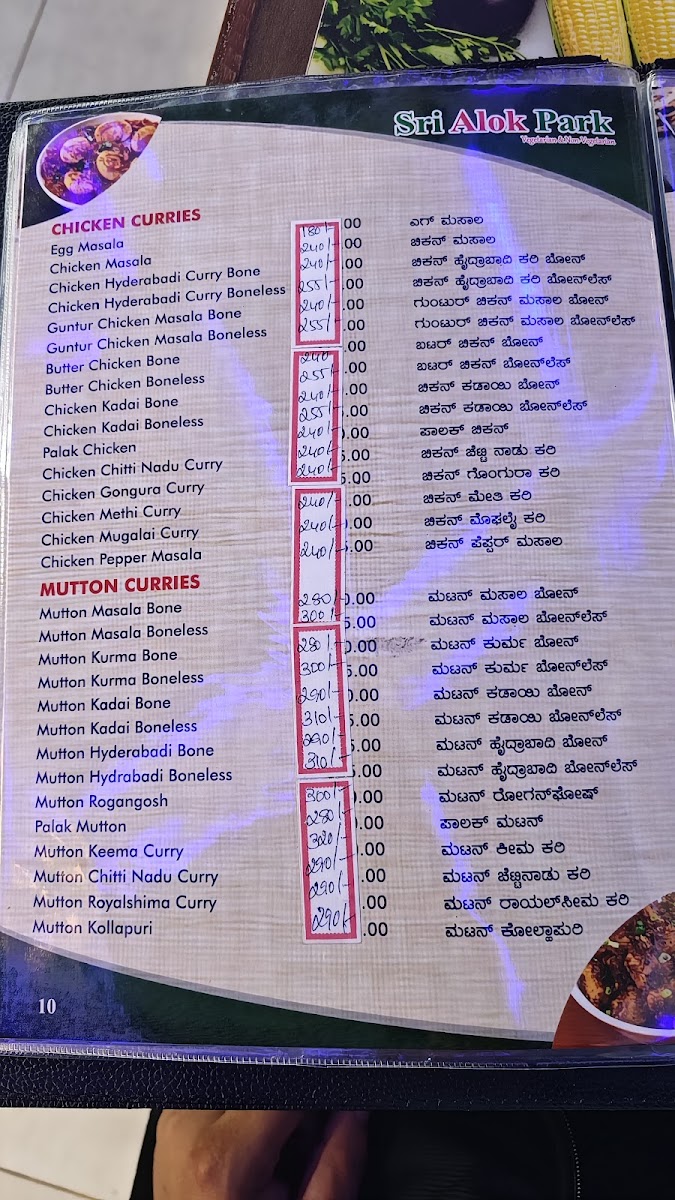 Sri Alok Park
Vegetarian & Non-Vegetarian
CHICKEN CURRIES
Egg Masala 180/- 00 ಎಗ್ ಮಸಾಲ
Chicken Masala 240/- 00 ಚಿಕನ್ ಮಸಾಲ
Chicken Hyderabadi Curry Bone 240/- 00 ಚಿಕನ್ ಹೈದ್ರಾಬಾದಿ ಕರಿ ಬೋನ್
Chicken Hyderabadi Curry Boneless 255/- 00 ಚಿಕನ್ ಹೈದ್ರಾಬಾದಿ ಕರಿ ಬೋನ್‌ಲೆಸ್
Guntur Chicken Masala Bone 240/- 00 ಗುಂಟುರ್ ಚಿಕನ್ ಮಸಾಲ ಬೋನ್
Guntur Chicken Masala Boneless 255/- 00 ಗುಂಟುರ್ ಚಿಕನ್ ಮಸಾಲ ಬೋನ್‌ಲೆಸ್
Butter Chicken Bone 240 .00 ಬಟರ್ ಚಿಕನ್ ಬೋನ್
Butter Chicken Boneless 255/- .00 ಬಟರ್ ಚಿಕನ್ ಬೋನ್‌ಲೆಸ್
Chicken Kadai Bone 240/- .00 ಚಿಕನ್ ಕಡಾಯಿ ಬೋನ್
Chicken Kadai Boneless 255/- .00 ಚಿಕನ್ ಕಡಾಯಿ ಬೋನ್‌ಲೆಸ್
Palak Chicken 240/- 0.00 ಪಾಲಕ್ ಚಿಕನ್
Chicken Chitti Nadu Curry 240/- 5.00 ಚಿಕನ್ ಚೆಟ್ಟಿ ನಾಡು ಕರಿ
Chicken Gongura Curry 240/- 5.00 ಚಿಕನ್ ಗೊಂಗುರಾ ಕರಿ
Chicken Methi Curry 240/- .00 ಚಿಕನ್ ಮೇತಿ ಕರಿ
Chicken Mugalai Curry 240/- .00 ಚಿಕನ್ ಮೊಘಲೈ ಕರಿ
Chicken Pepper Masala 240/- 5.00 ಚಿಕನ್ ಪೆಪ್ಪರ್ ಮಸಾಲ
MUTTON CURRIES
Mutton Masala Bone 280/- 0.00 ಮಟನ್ ಮಸಾಲ ಬೋನ್
Mutton Masala Boneless 300/- 5.00 ಮಟನ್ ಮಸಾಲ ಬೋನ್‌ಲೆಸ್
Mutton Kurma Bone 280/- 0.00 ಮಟನ್ ಕುರ್ಮ ಬೋನ್
Mutton Kurma Boneless 300/- 5.00 ಮಟನ್ ಕುರ್ಮ ಬೋನ್‌ಲೆಸ್
Mutton Kadai Bone 290/- 0.00 ಮಟನ್ ಕಡಾಯಿ ಬೋನ್
Mutton Kadai Boneless 310/- 5.00 ಮಟನ್ ಕಡಾಯಿ ಬೋನ್‌ಲೆಸ್
Mutton Hyderabadi Bone 290/- 5.00 ಮಟನ್ ಹೈದ್ರಾಬಾದಿ ಬೋನ್
Mutton Hydrabadi Boneless 310/- 5.00 ಮಟನ್ ಹೈದ್ರಾಬಾದಿ ಬೋನ್‌ಲೆಸ್
Mutton Rogangosh 300/- 0.00 ಮಟನ್ ರೋಗನ್‌ಘೋಷ್
Palak Mutton 280/- .00 ಪಾಲಕ್ ಮಟನ್
Mutton Keema Curry 320/- .00 ಮಟನ್ ಕೀಮ ಕರಿ
Mutton Chitti Nadu Curry 290/- .00 ಮಟನ್ ಚೆಟ್ಟಿನಾಡು ಕರಿ
Mutton Royalshima Curry 290/- .00 ಮಟನ್ ರಾಯಲ್‌ಸೀಮ ಕರಿ
Mutton Kollapuri 290/- .00 ಮಟನ್ ಕೋಲ್ಹಾಪುರಿ
10